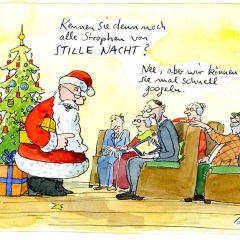 Kennen Sie denn noch
alle Strophen von
STILLE NACHT?
Nee, aber wir können
sie mal schnell
googeln.